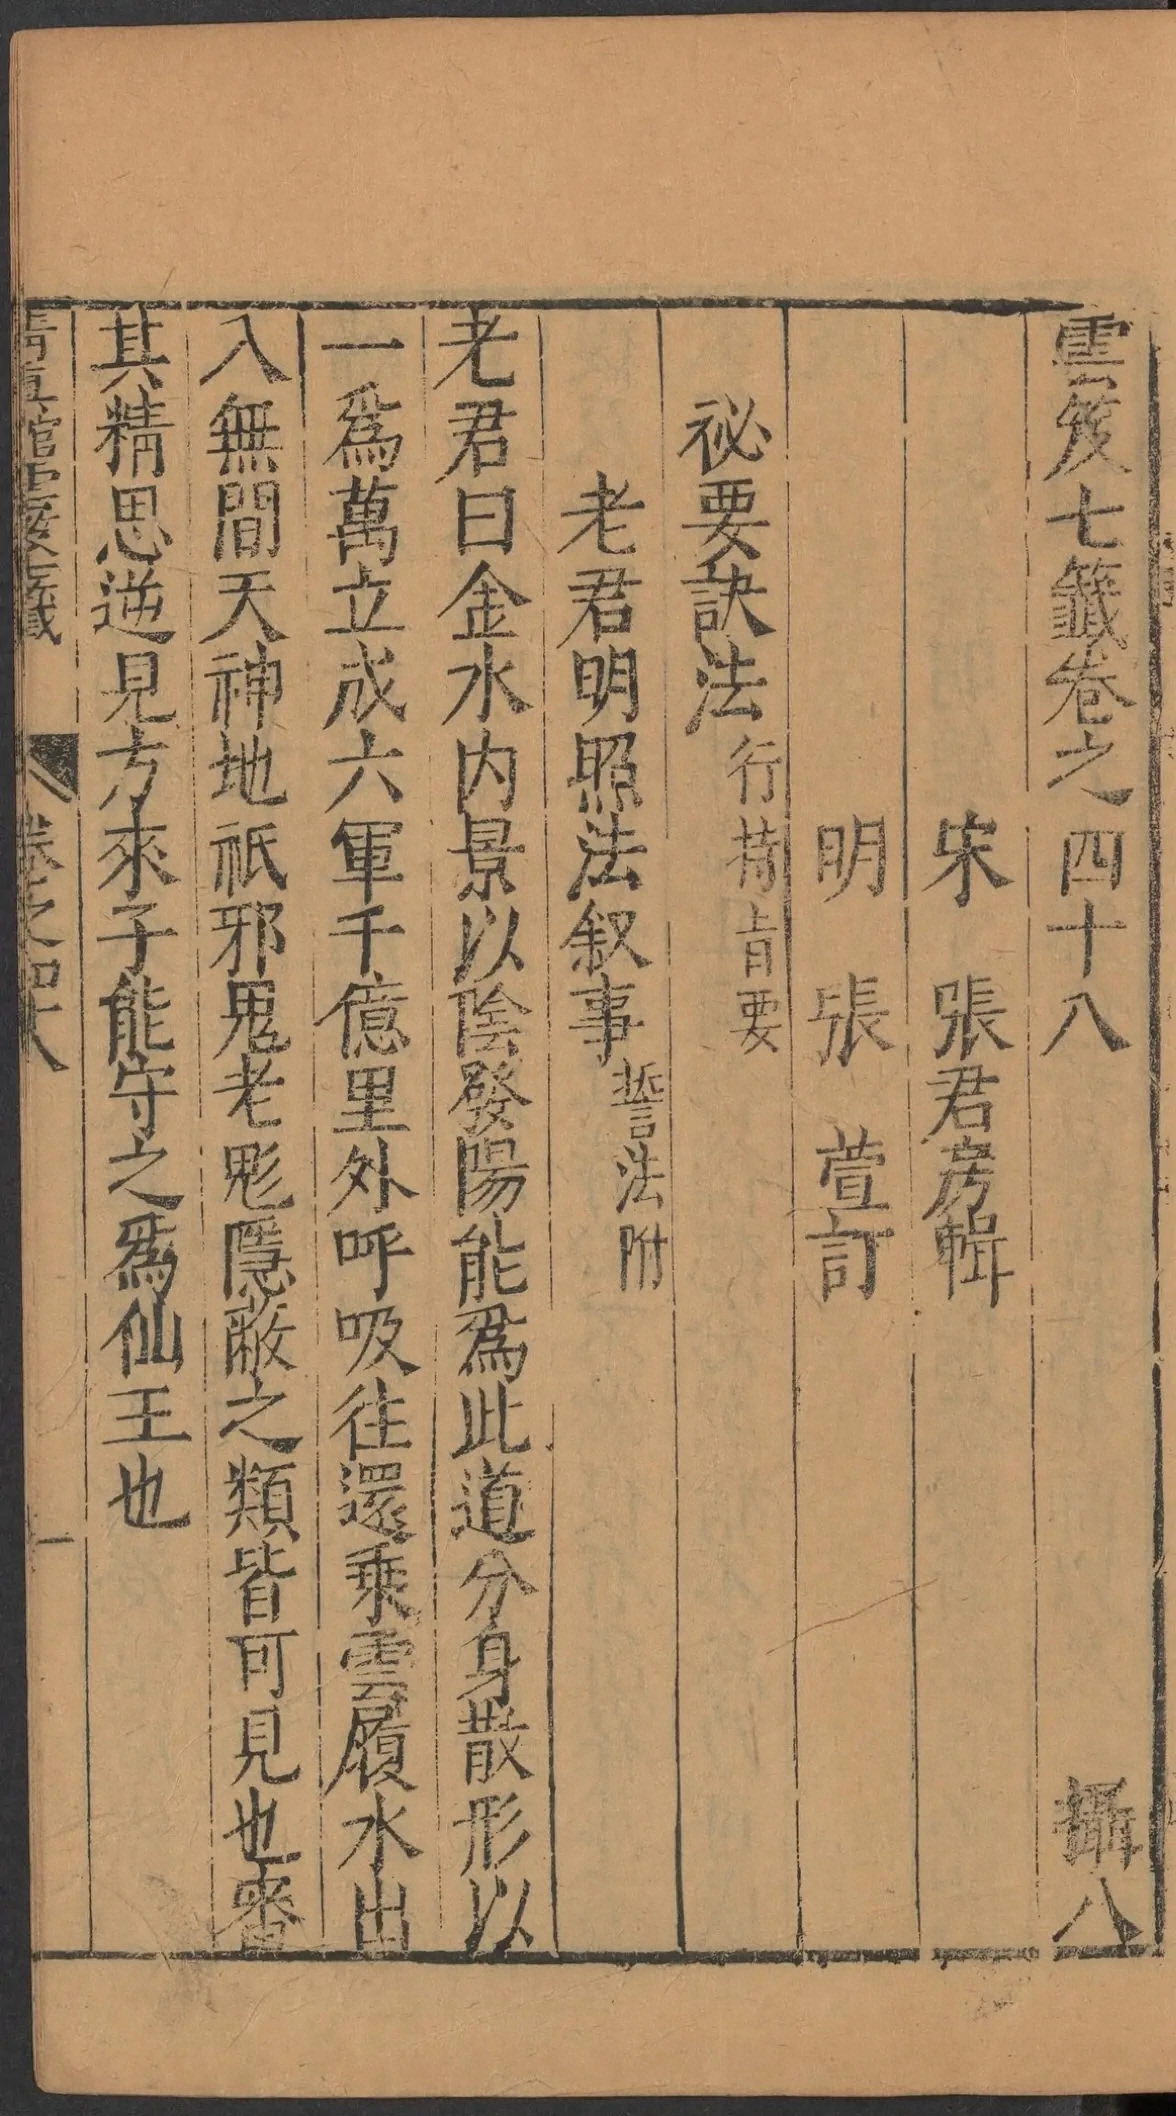 雲笈七籤卷之四十八　攝八
宋　張君房輯
明　張　萱訂
祕要訣法行持旨要
老君明照法叙事誓法附
老君曰金水内景以陰發陽能爲此道分身散形以
一爲萬立成六軍千億里外呼吸往還乘雲履水出
入無間天神地祇邪鬼老魅隱蔽之類皆可見也審
其精思逆見方來子能守之爲仙王也
卷之四十八　一